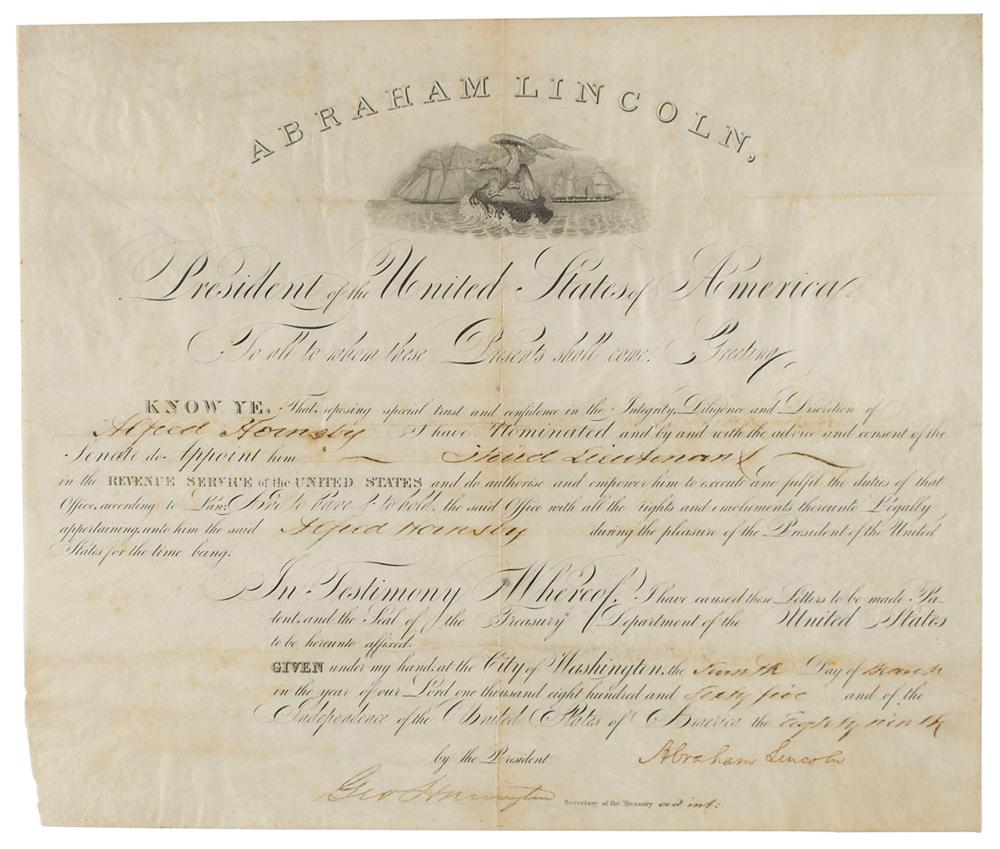 ABRAHAM LINCOLN,
President of the United States of America.
To all to whom these Presents shall come. Greeting
KNOW YE, That reposing special trust and confidence in the Integrity, Diligence and Discretion of
Alfred Hornsby I have Nominated and by and with the advice and consent of the
Senate do Appoint him Third Lieutenant
in the REVENUE SERVICE of the UNITED STATES and do authorise and empower him to execute and fulfil the duties of that
Office, according to Law: And to have & to hold, the said Office with all the rights and emoluments thereunto Legally
appertaining, unto him the said Alfred Hornsby during the pleasure of the President of the United
States for the time being.
In Testimony Whereof, I have caused these Letters to be made Pa-
tent, and the Seal of the Treasury Department of the United States
to be hereunto affixed.
GIVEN under my hand, at the City of Washington, the Day of March
in the year of our Lord one thousand eight hundred and sixty five and of the
Independence of the United States of America the Eighty ninth
by the President.
Abraham Lincoln
Geo Harrington Secretary of the Treasury ad int: